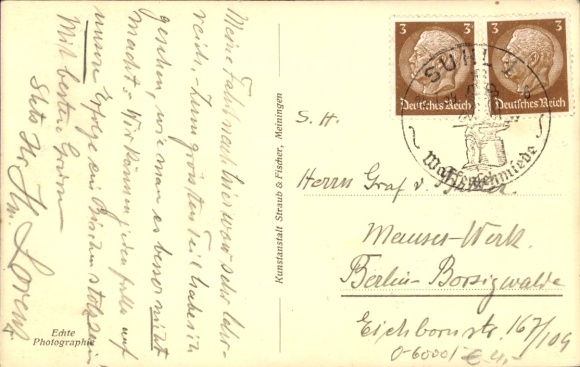 Meine Fahrt nach hier war sehr lehr-
reich, - Zum grössten Teil habe ich
gesehen, wie man es besser nicht
macht. Wir können jedenfalls auf
unsere Erfolge ein bischen stolz sein
Mit besten Grüssen
Stets Ihr
H. Lorenz
Echte
Photographie
Kunstanstalt Straub & Fischer, Meiningen
3 3
Deutsches Reich
3 3
Deutsches Reich
SUHL
Waffenschmiede
S. H.
Herrn Graf v.
Mauser-Werk.
Berlin-Borsigwalde
Eichbornstr. 167/109
0-60001 € 4,-